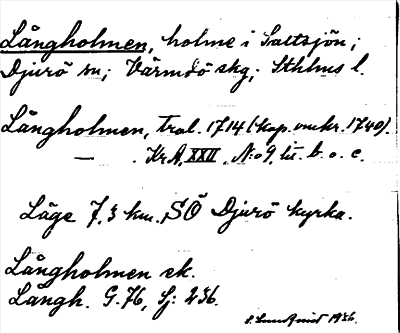 Långholmen, holme i Saltsjön;
Djurö sn; Värmdö skg; Sthlms l.
Långholmen, tral. 1714 (kop. omkr. 1740).
— . Kr A, XXII, No 9, lit. b. o. c.
Läge 7,3 km. SÖ Djurö kyrka.
Långholmen ek.
Långh. G. 76, Sj: 236.
1936.